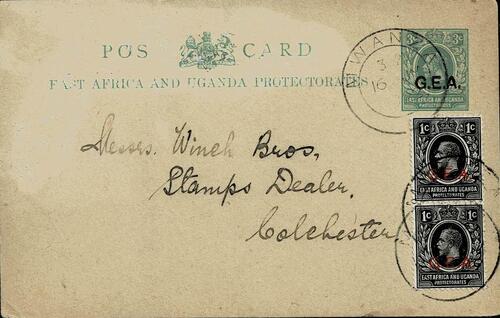 POS CARD
EAST AFRICA AND UGANDA PROTECTORATES
MWANZ
3
16
3c
G.E.A.
EAST AFRICA AND UGANDA
PROTECTORATES
Messrs. Winch Bros,
Stamps Dealer,
Colchester
1c 1c
G.E.A.
EAST AFRICA AND UGANDA
PROTECTORATES
1c 1c
G.E.A.
EAST AFRICA AND UGANDA
PROTECTORATES